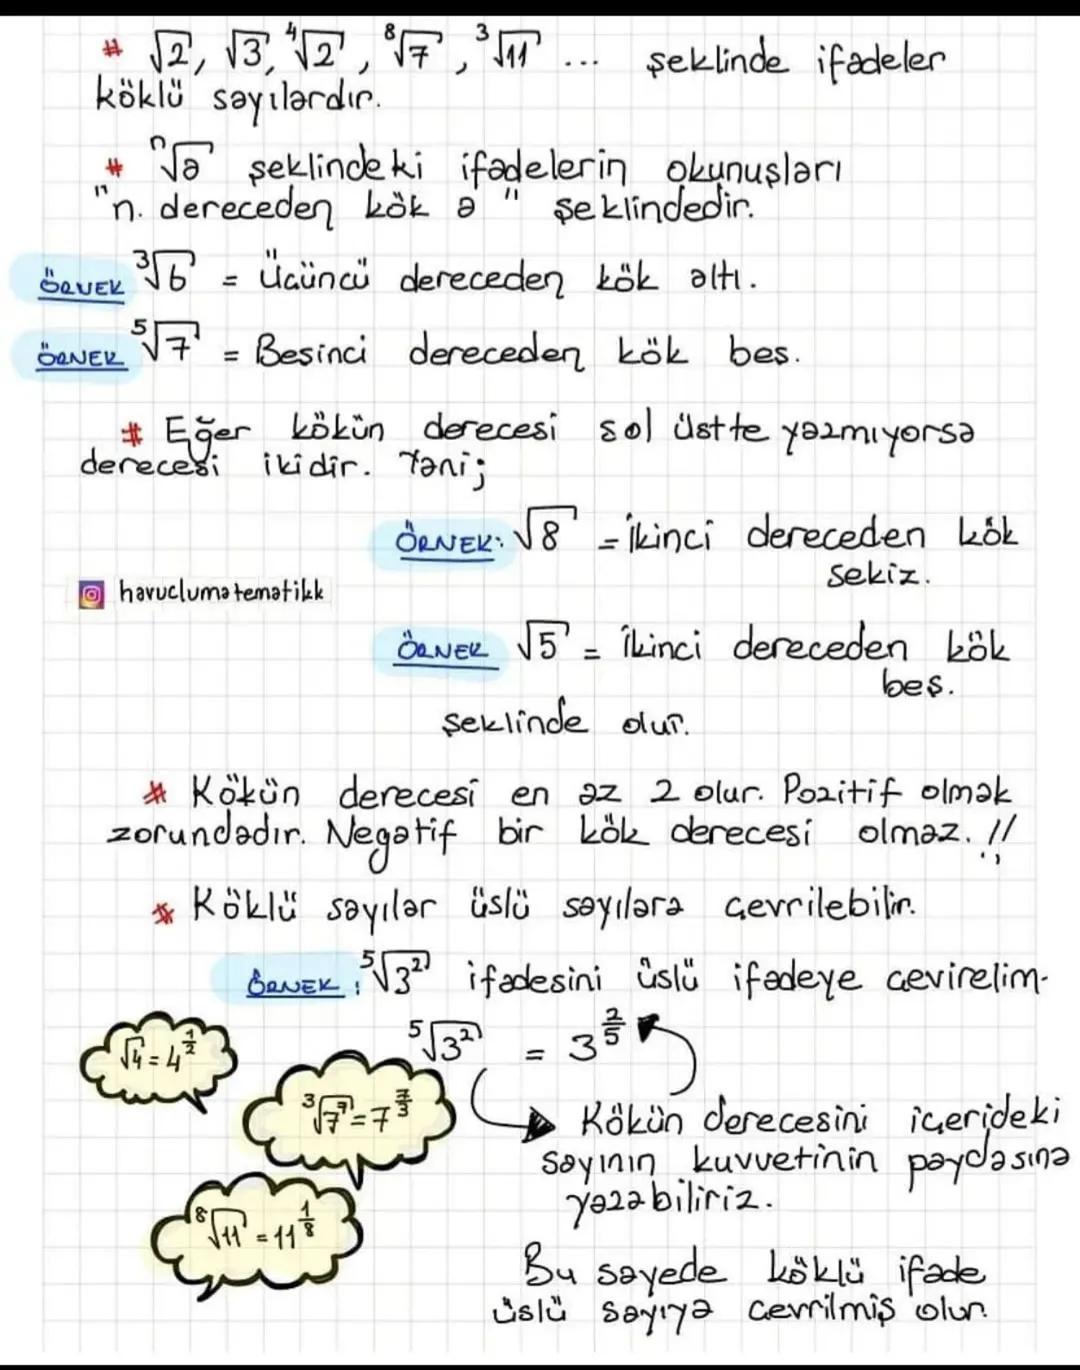 # √2, √3, ⁴√2, ⁸√7, ³√11 ... şeklinde ifadeler
köklü sayılardır.
# ⁿ√a şeklindeki ifadelerin okunuşları
"n. dereceden kök a" şeklindedir.
ÖRNEK ³√6 = Üçüncü dereceden kök altı.
ÖRNEK ⁵√7 = Beşinci dereceden kök beş.
# Eğer kökün derecesi sol üstte yazmıyorsa
derecesi ikidir. Yani;
ÖRNEK: √8 = İkinci dereceden kök
sekiz.
havuclumatematikk
ÖRNEK √5 = İkinci dereceden kök
beş.
şeklinde olur.
# Kökün derecesi en az 2 olur. Pozitif olmak
zorundadır. Negatif bir kök derecesi olmaz. !!
# Köklü sayılar üslü sayılara çevrilebilir.
ÖRNEK: ⁵√3² ifadesini üslü ifadeye çevirelim.
⁵√3² = 3^(2/5)
√4 = 4^(1/2)
³√7⁷ = 7^(7/3)
⁸√11 = 11^(1/8)
Kökün derecesini içerideki
sayının kuvvetinin paydasına
yazabiliriz.
Bu sayede köklü ifade
üslü sayıya çevrilmiş olur.